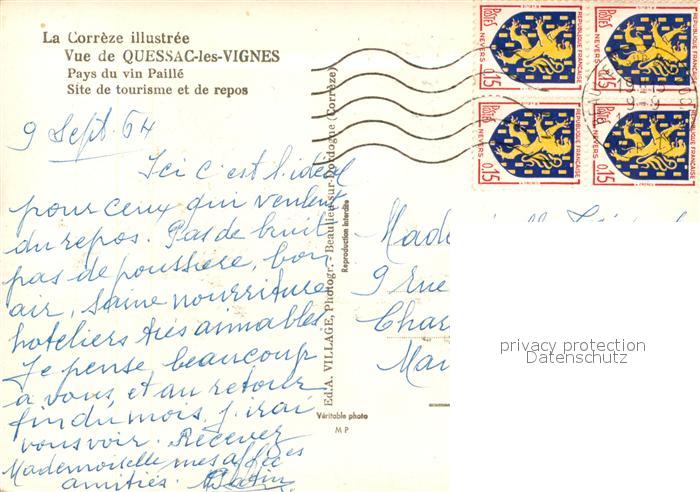 La Corrèze illustrée
Vue de QUESSAC-les-VIGNES
Pays du vin Paillé
Site de tourisme et de repos
9 Sept. 64
Ici c'est l'idéal
pour ceux qui veulent
du repos. Pas de bruit
pas de poussière, bon
air, Saine nourriture
hoteliers très aimables
Je pense, beaucoup
à vous, et au retour
fin du mois, j'irai
vous voir. Recevez
Mademoiselle mes
amitiés.
Ed. A. VILLAGE, Photogr. - Beaulieu-sur-Dordogne (Corrèze)
Reproduction interdite
Véritable photo
M P
POSTES
RÉPUBLIQUE FRANÇAISE
NEVERS
0,15
POSTES
RÉPUBLIQUE FRANÇAISE
NEVERS
0,15
POSTES
RÉPUBLIQUE FRANÇAISE
NEVERS
0,15
POSTES
RÉPUBLIQUE FRANÇAISE
NEVERS
0,15
Made
9 rue
Char
Mar
privacy protection
Datenschutz